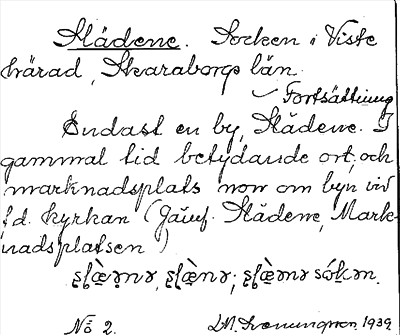 Slädene. Socken i Viste
härad, Skaraborgs län.
Fortsättning
Endast en by, Slädene. I
gammal tid betydande ort, och
marknadsplats norr om byn vid
f.d. kyrkan (Jämf. Slädene, Mark-
nadsplatsen)
No 2. 1939